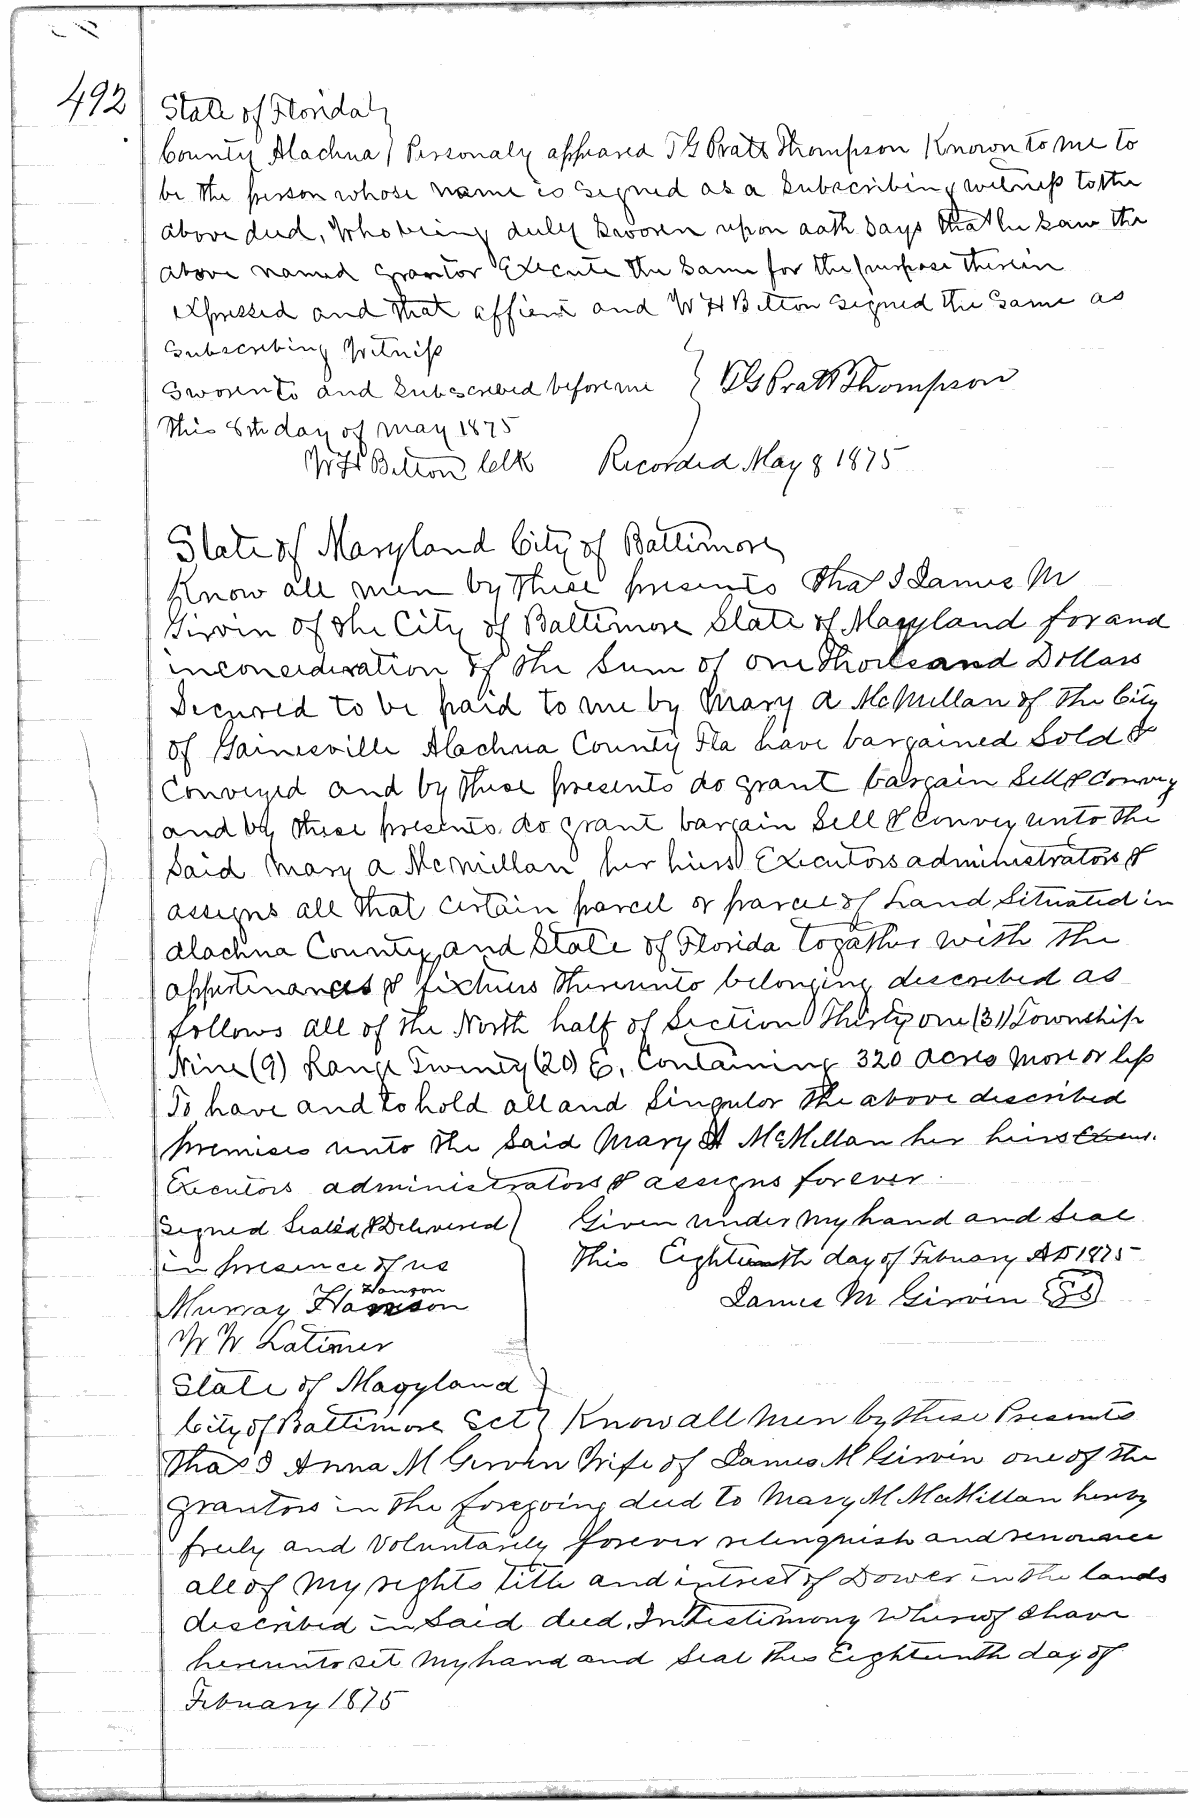 492
State of Florida }
County Alachua } Personaly appeared T G Pratt Thompson Known to me to
be the person whose name is signed as a Subscribing witness to the
above deed, Who being duly Sworen upon oath Says that he Saw the
above named grantor Execute the Same for the purpose therein
expressed and that affient and W H Belton signed the same as
Subscribing Witness
Sworen to and Subscribed before me } T G Pratt Thompson
this 8th day of may 1875
W H Belton Clk Recorded May 8 1875
State of Maryland City of Baltimore
Know all men by these presents that I James M
Girvin of the City of Baltimore State of Maryland for and
in concideration of the Sum of one thousand Dollars
Secured to be paid to me by Mary A McMillan of the City
of Gainesville Alachua County Fla have bargained Sold &
Conveyed and by these presents do grant bargain Sell & Convey
and by these presents do grant bargain Sell & Convey unto the
Said Mary A McMillan her hiers Executors administrators &
assigns all that certain parcel or parcel of Land Situated in
Alachua County and State of Florida togather with the
appertinances & fixtures thereunto belonging described as
follows all of the North half of Section Thirty one (31) Township
Nine (9) Range Twenty (20) E. Containing 320 acres More or less
To have and to hold all and Singulor the above described
premises unto the Said Mary A McMillan her heirs Exeus.
Executors administrators & assigns forever
Signed Sealed & Delivered } Given under my hand and Seal
in presence of us this Eighteenth day of Febuary AD 1875
Hanson
Murray Hanson James M Girvin SS
W W Latimer
State of Maryland }
City of Baltimore Sct } Know all Men by these Presents
that I Anna M Girvin Wife of James M Girvin one of the
grantors in the foregoing deed to Mary M McMillan hereby
freely and Voluntarily forever relinquish and renounce
all of my rights title and intrest of Dower in the lands
described in Said deed. In testimony Whereof I have
hereunto set my hand and Seal this Eighteenth day of
Febuary 1875